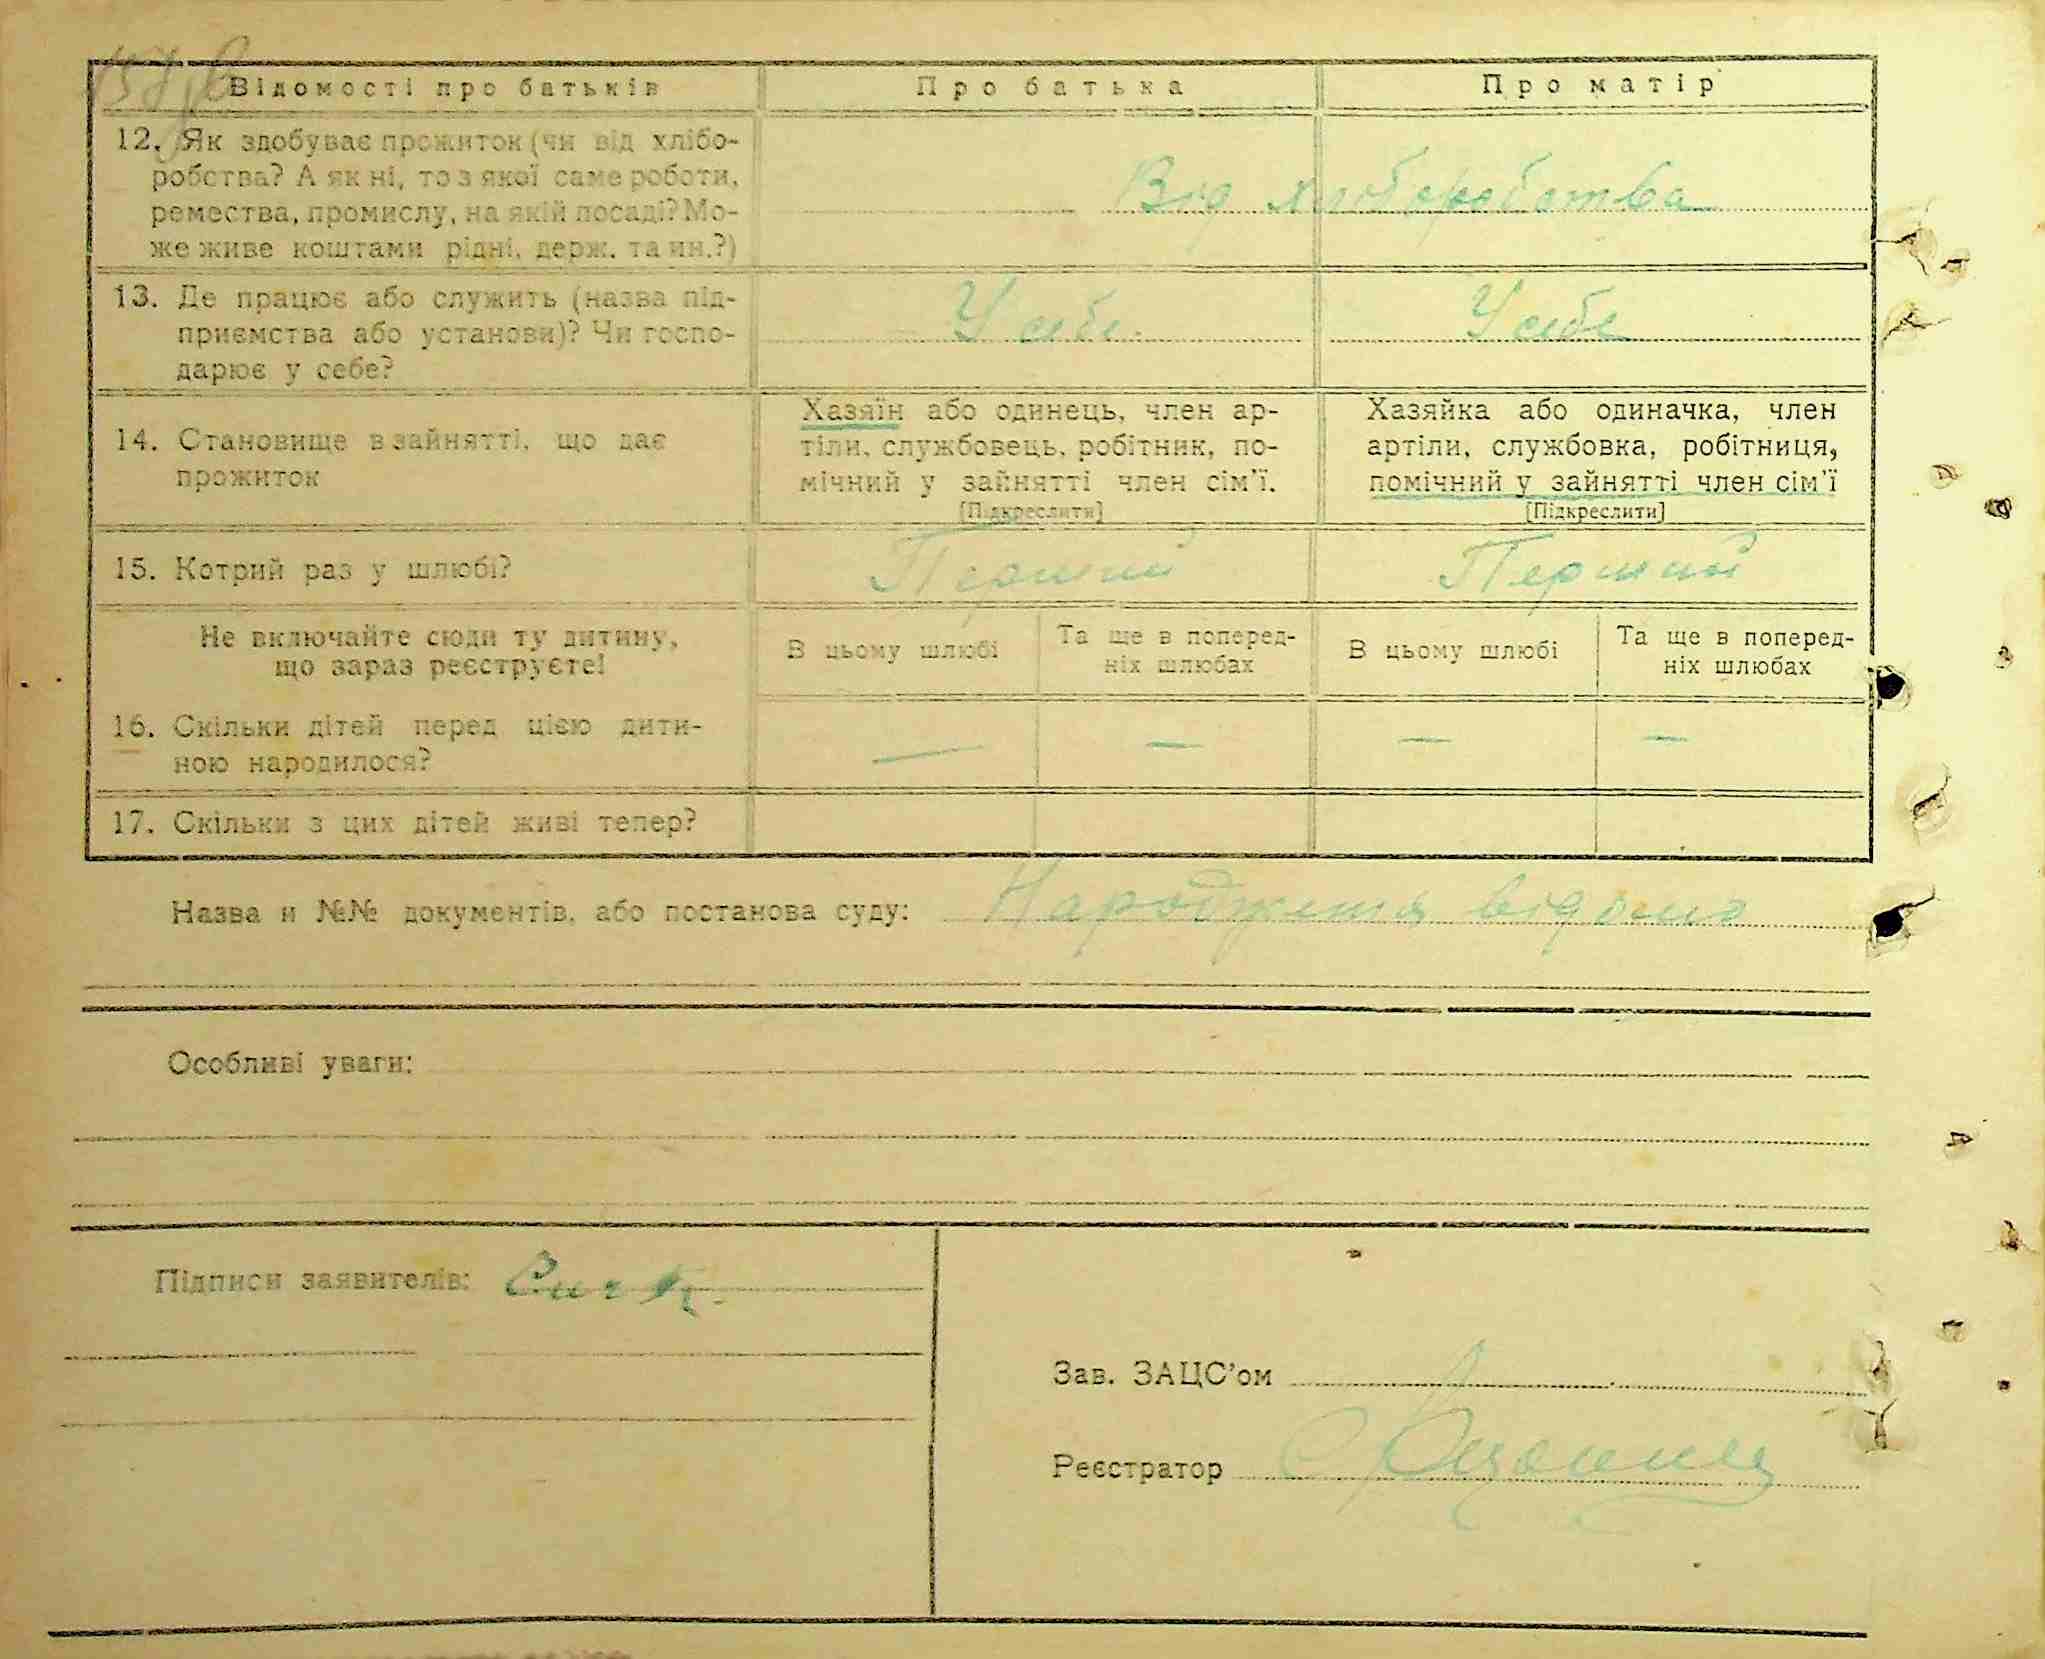 Відомості про батьків Про батька Про матір
12. Як здобуває прожиток (чи від хлібо-
робства? А як ні, то з якої саме роботи,
ремества, промислу, на якій посаді? Мо-
же живе коштами рідні, держ. та ин.?)
Від хліборобства
13. Де працює або служить (назва під-
приємства або установи)? Чи госпо-
дарює у себе?
У себе.
У себе
14. Становище в зайнятті, що дає
прожиток
Хазяїн або одинець, член ар-
тіли, службовець, робітник, по-
мічний у зайнятті член сім'ї.
[Підкреслити]
Хазяйка або одиначка, член
артіли, службовка, робітниця,
помічний у зайнятті член сім'ї
[Підкреслити]
15. Котрий раз у шлюбі?
Перший
Перший
Не включайте сюди ту дитину,
що зараз реєструєте!
В цьому шлюбі
Та ще в поперед-
ніх шлюбах
В цьому шлюбі
Та ще в поперед-
ніх шлюбах
16. Скільки дітей перед цією дити-
ною народилося?
— — — —
17. Скільки з цих дітей живі тепер?
Назва и №№ документів, або постанова суду: Народження відомо
Особливі уваги:
Підписи заявителів:
Зав. ЗАЦС'ом
Реєстратор